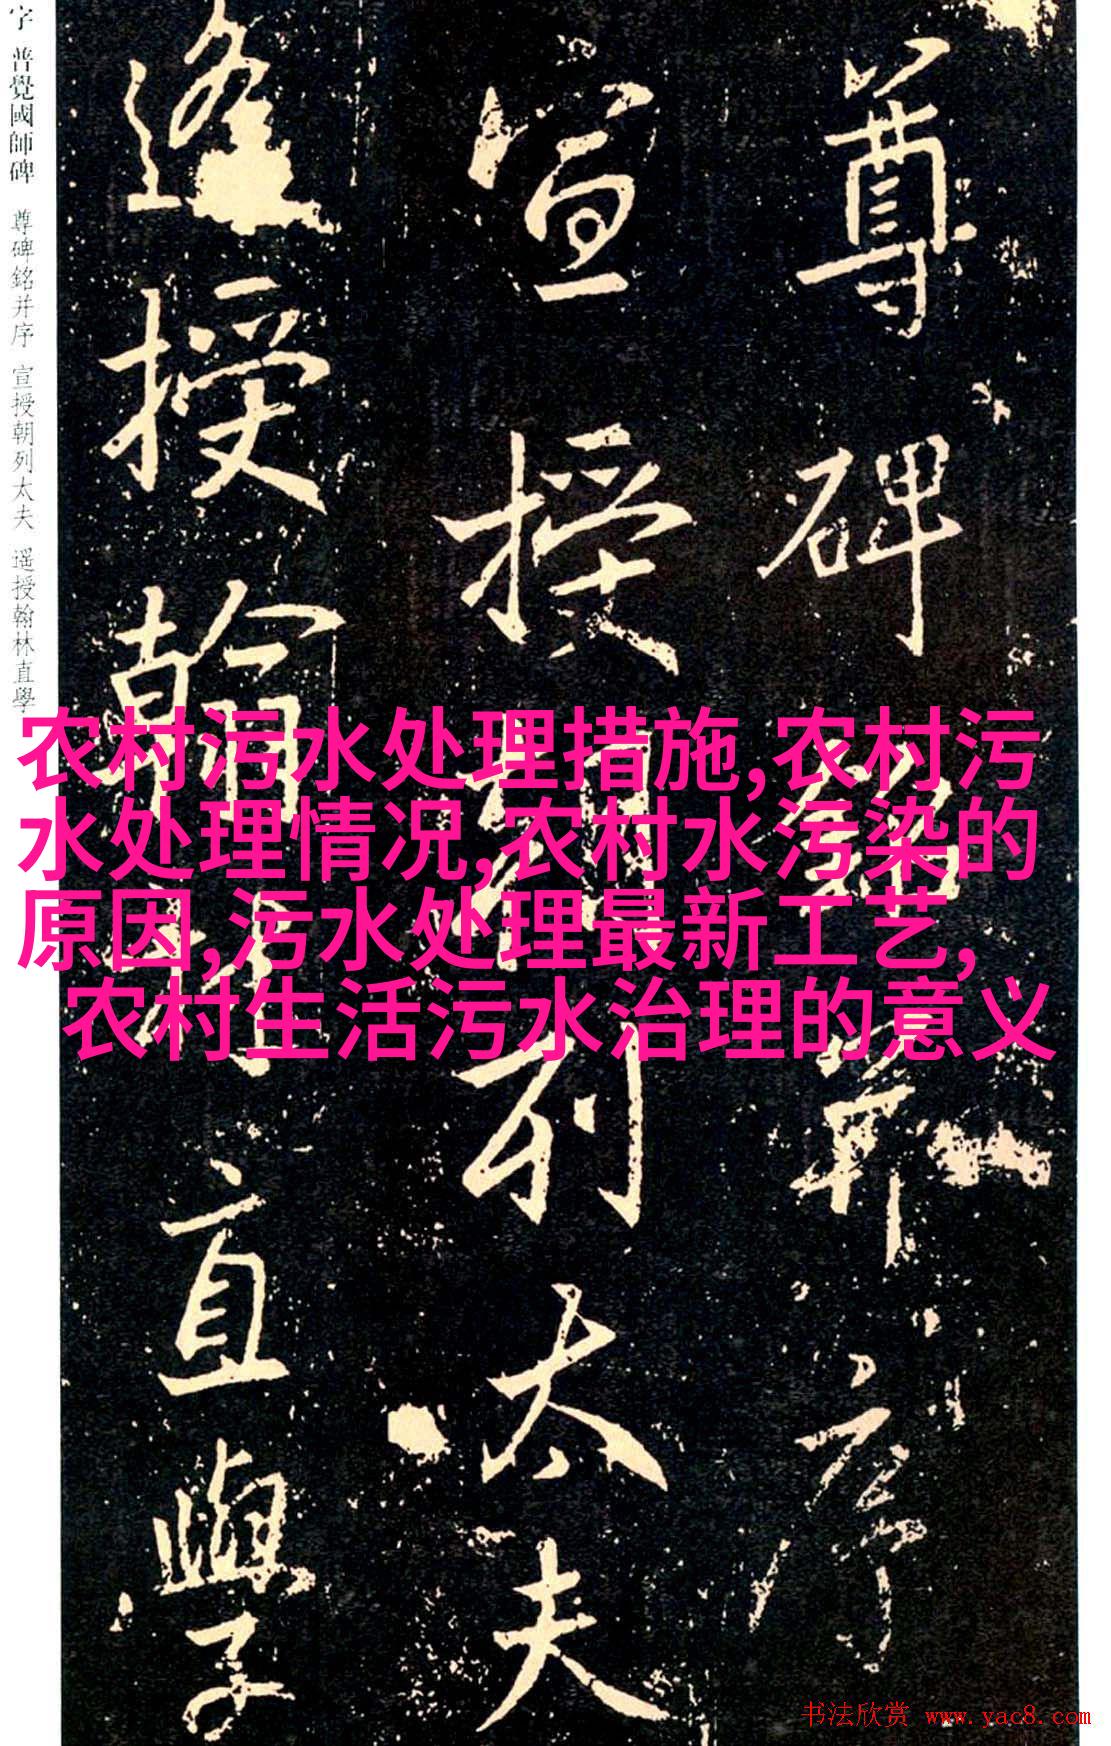 字 普覺國師碑 尊碑銘并序 宣授朝列太夫 遥授翰林直學
尊碑銘并序
宣授朝列太夫
遙授翰林直學
农村污水处理措施,农村污
水处理情况,农村水污染的
原因,污水处理最新工艺,
农村生活污水治理的意义
书法欣赏 www.yac8.com